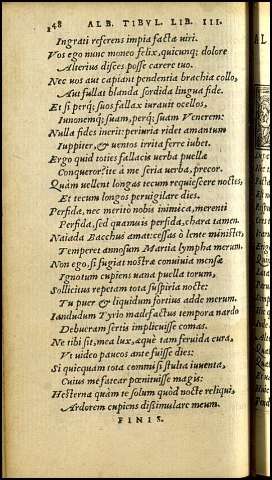 48 ALB. TIBVL. LIB. III.
Ingrati referens impia facta uiri.
Vos ego nunc moneo felix, quicunq; dolore
Alterius disces posse carere tuo.
Nec uos aut capiant pendentia brachia collo,
Aut fallat blanda sordida lingua fide.
Et si perq; suos fallax iurauit ocellos,
Iunonemq; suam, perq; suam Venerem:
Nulla fides inerit: periuria ridet amantum
Iuppiter, & uentos irrita ferre iubet.
Ergo quid toties fallacis uerba puellæ
Conqueror? ite à me seria uerba, precor.
Quàm uellent longas tecum requiescere noctes,
Et tecum longos peruigilare dies.
Perfida, nec merito nobis inimica, merenti
Perfida, sed quamuis perfida, chara tamen.
Naiada Bacchus amat: cessas ô lente minister,
Temperet annosum Martia lympha merum.
Non ego, si fugiat nostræ conuiuia mensæ
Ignotum cupiens uana puella torum,
Sollicitus repetam tota suspiria nocte:
Tu puer & liquidum fortius adde merum.
Iandudum Tyrio madefactus tempora nardo
Debueram sertis implicuisse comas.
Ne tibi sit, mea lux, æquè tam feruida cura,
Vt uideo paucos ante fuisse dies:
Si quicquam tota commisi stulta iuuenta,
Cuius me fatear pœnituisse magis:
Hesterna quàm te solum quòd nocte reliqui,
Ardorem cupiens dissimulare meum.
FINIS.